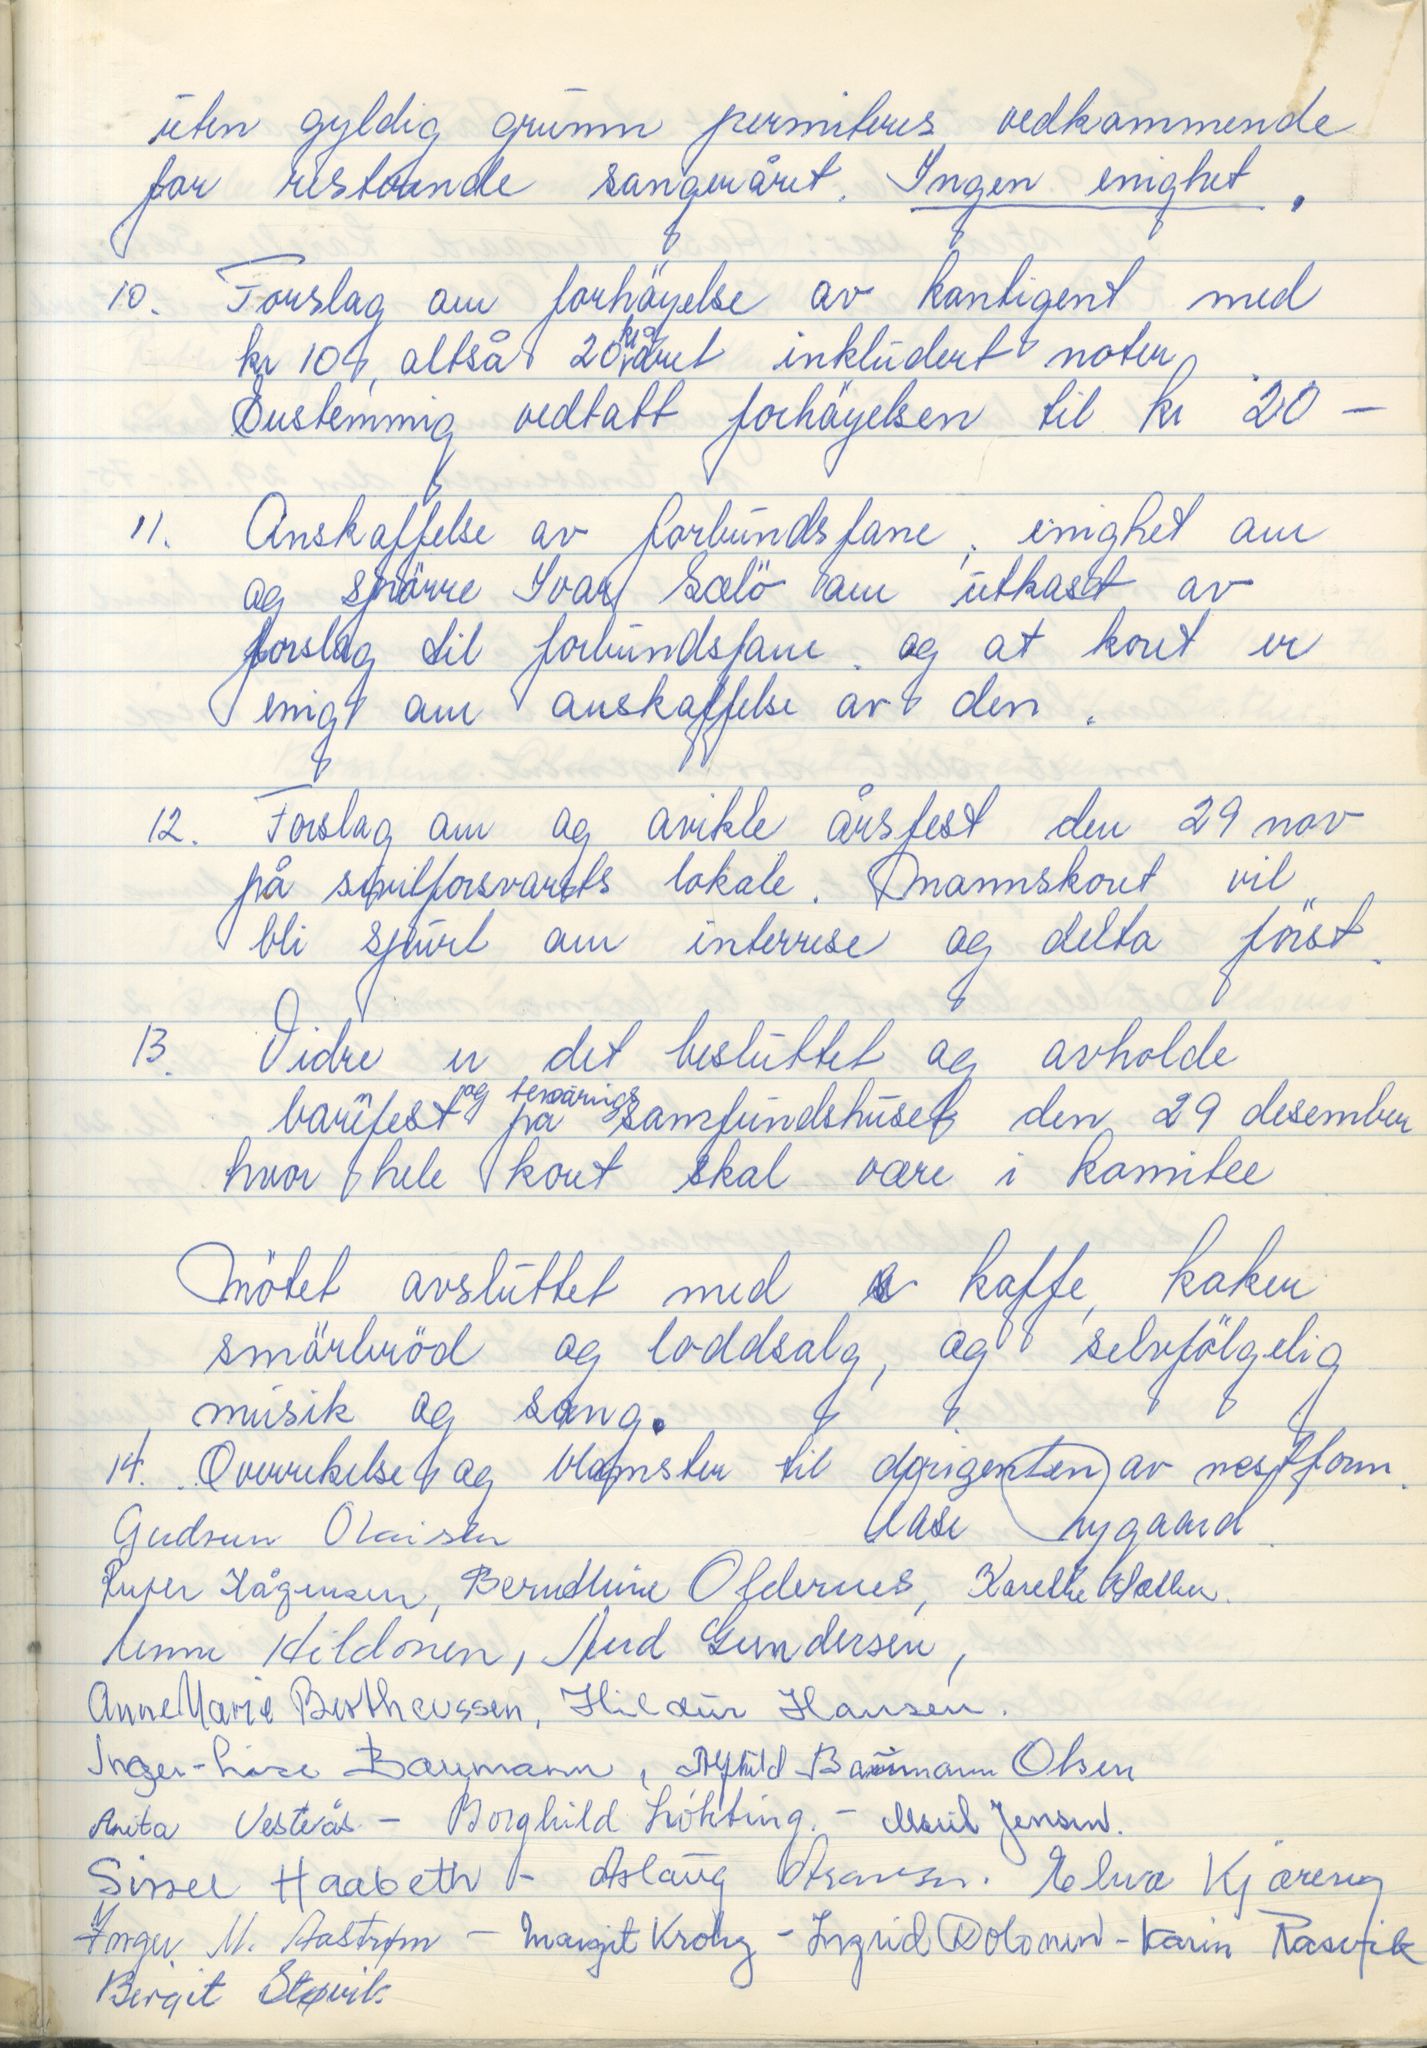 uten gyldig grunn permiteres vedkommende
for restrende sangeråret. Ingen enighet.
10. Forslag om forhöyelse av kontigent med
kr 10, altså 20 kr året inkludert noter
Enstemmig vedtatt forhöyelsen til kr 20 -
11. Anskaffelse av forbundsfane, enighet om
og spörre Ivar Sælö om utkast av
forslag til forbundsfane. og at koret er
enigt om anskaffelse av den.
12. Forslag om og avikle årsfest den 29 nov
på sivilforsvarets lokale. Mannskoret vil
bli spurt om interrese og delta först.
13. Vidre er det besluttet og avholde
barefest og på samfundshuset den 29 desember
hvor hele koret skal være i komitee
Mötet avsluttet med kaffe, kaker
smörbröd og loddsalg, og selvfölgelig
musik og sang.
14. Overrekelse og blomster til dirigenten av nestform.
Gudrun Olaisen Aase Nygaard
Inger Hågensen, Berndtine Oldernes, Karethe
Unni Hildonen, Aud Gundersen,
Anne Marie Bertheussen, Hildur Hansen.
Inger-Lise Baumann, Alfhild Baumann Olsen
Anita Vesterås - Borghild Løkting. - Marit Jensen.
Sissel Haabeth - Aslaug Elva Kjæreng
Inger M. Aastrøm - Margit Krohg - Ingrid Dolonen - Karin Rasvik
Bergit Størvik